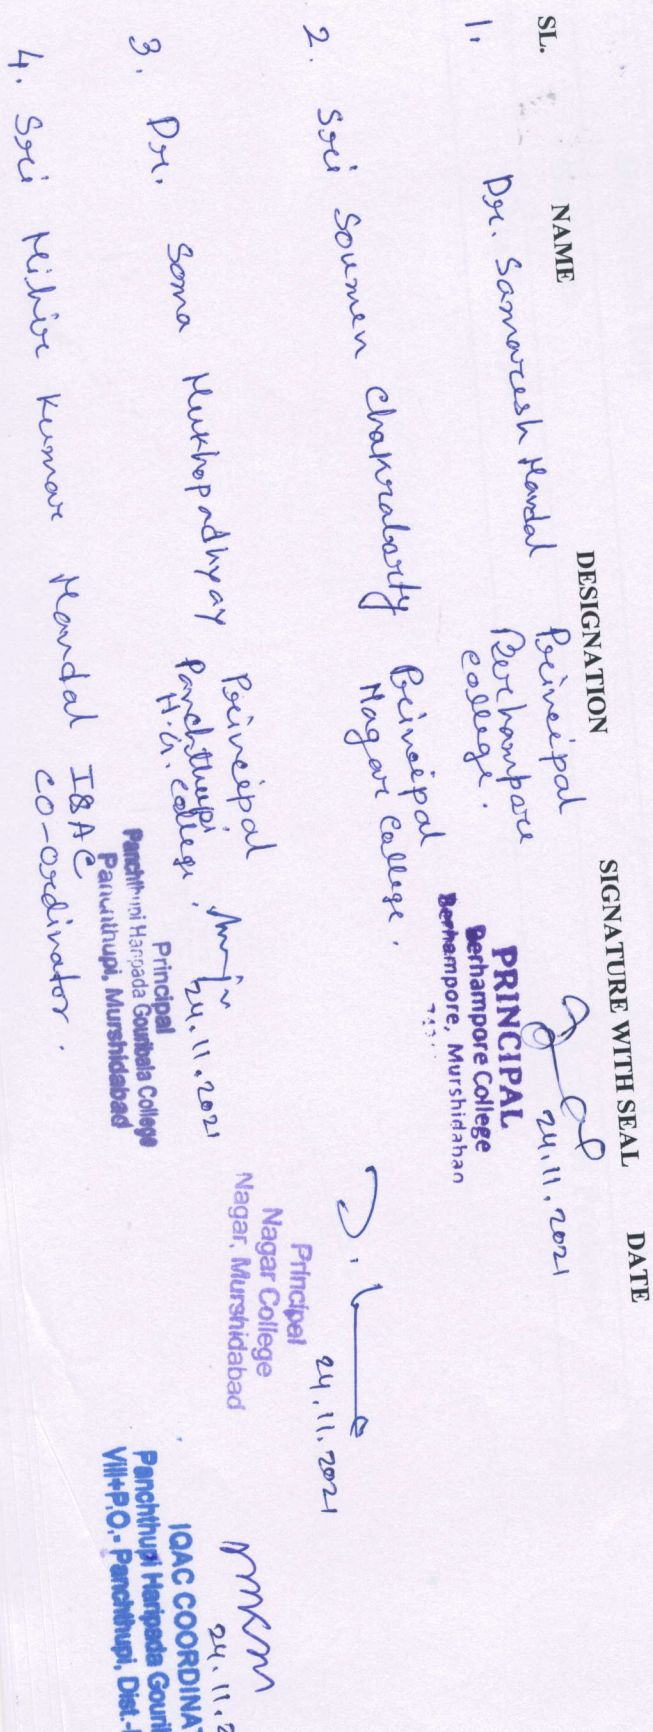 SL. NAME DESIGNATION SIGNATURE WITH SEAL DATE
1. Dr. Samaresh Mandal Principal
Berhampore
College.
24.11.2021
PRINCIPAL
Berhampore College
Berhampore, Murshidabad
2. Sri Soumen Chakrabarty Principal
Nagar College.
24.11.2021
Principal
Nagar College
Nagar, Murshidabad
3. Dr. Soma Mukhopadhyay Principal
Panchthupi
H.G. College,
24.11.2021
Principal
Panchthupi Haripada Gouribala College
Panchthupi, Murshidabad
4. Sri Mihir Kumar Mandal IQAC
CO-ordinator.
MKM
24.11.2
IQAC COORDINAT
Panchthupi Haripada Gourib
Vill+P.O.- Panchthupi, Dist.-